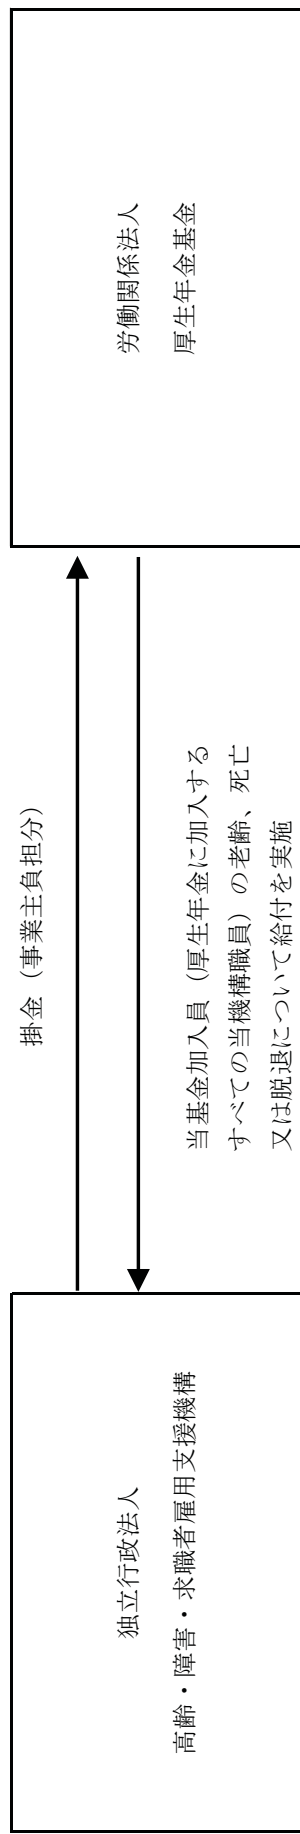 独立行政法人
高齢・障害・求職者雇用支援機構
掛金（事業主負担分）
当基金加入員（厚生年金に加入する
すべての当機構職員）の老齢、死亡
又は脱退について給付を実施
労働関係法人
厚生年金基金